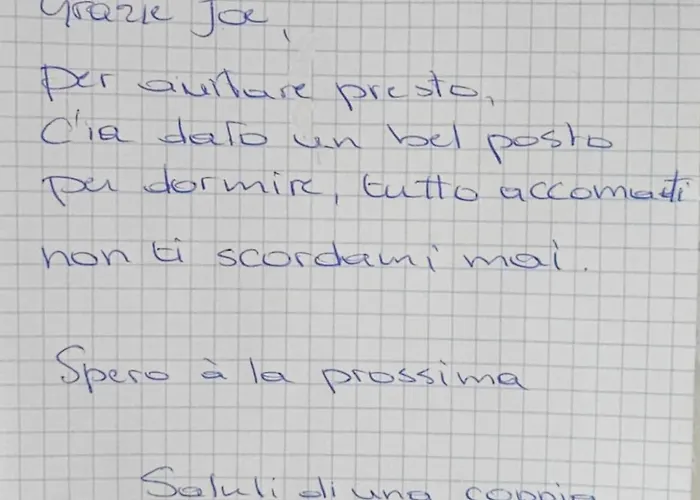 Grazie Joe,
per auitare presto,
C'ia dato un bel posto
per dormire, tutto accomodati
non ti scordami mai.
Spero à la prossima
Saluti di una coppia